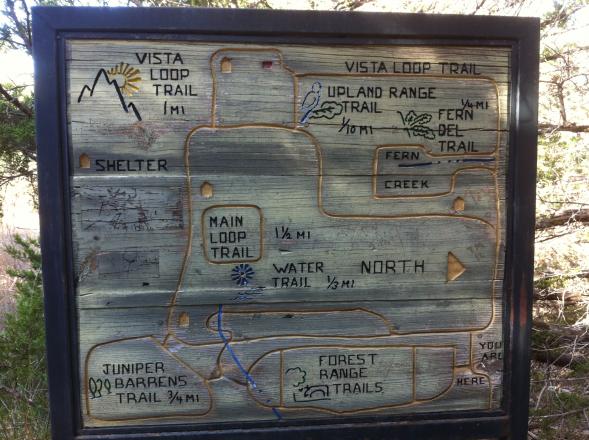 VISTA
LOOP
TRAIL
1 MI
VISTA LOOP TRAIL
UPLAND RANGE
TRAIL
1/10 MI
1/4 MI
FERN
DEL
TRAIL
FERN
CREEK
SHELTER
MAIN
LOOP
TRAIL
1 1/2 MI
WATER
TRAIL 1/3 MI
NORTH
JUNIPER
BARRENS
TRAIL 3/4 MI
FOREST
RANGE
TRAILS
YOU
ARE
HERE